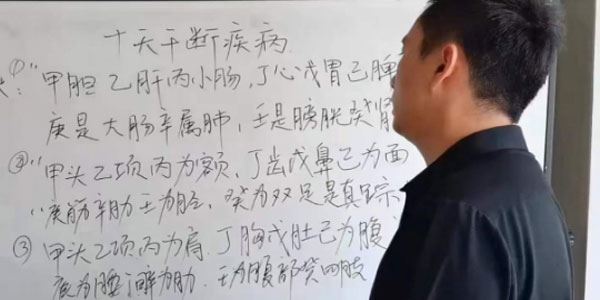 十天干断疾病
①"甲胆乙肝丙小肠,丁心戊胃己脾
庚是大肠辛属肺,壬是膀胱癸肾
②"甲头乙项丙为额,丁齿戊鼻己为面
"庚筋辛肋壬为胫,癸为双足是真踪
③甲头乙项丙为肩,丁胸戊肚己为腹
庚为腰 辛为肋,壬为腹部癸四肢